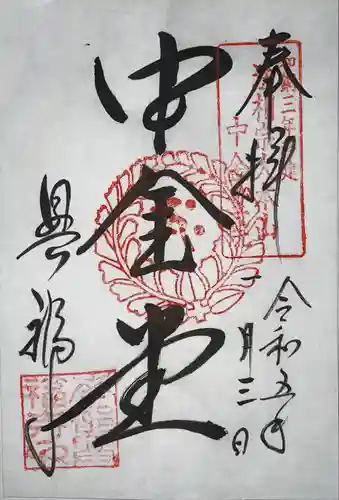 奉拝
令和五年
一月三日
中金堂
興福寺